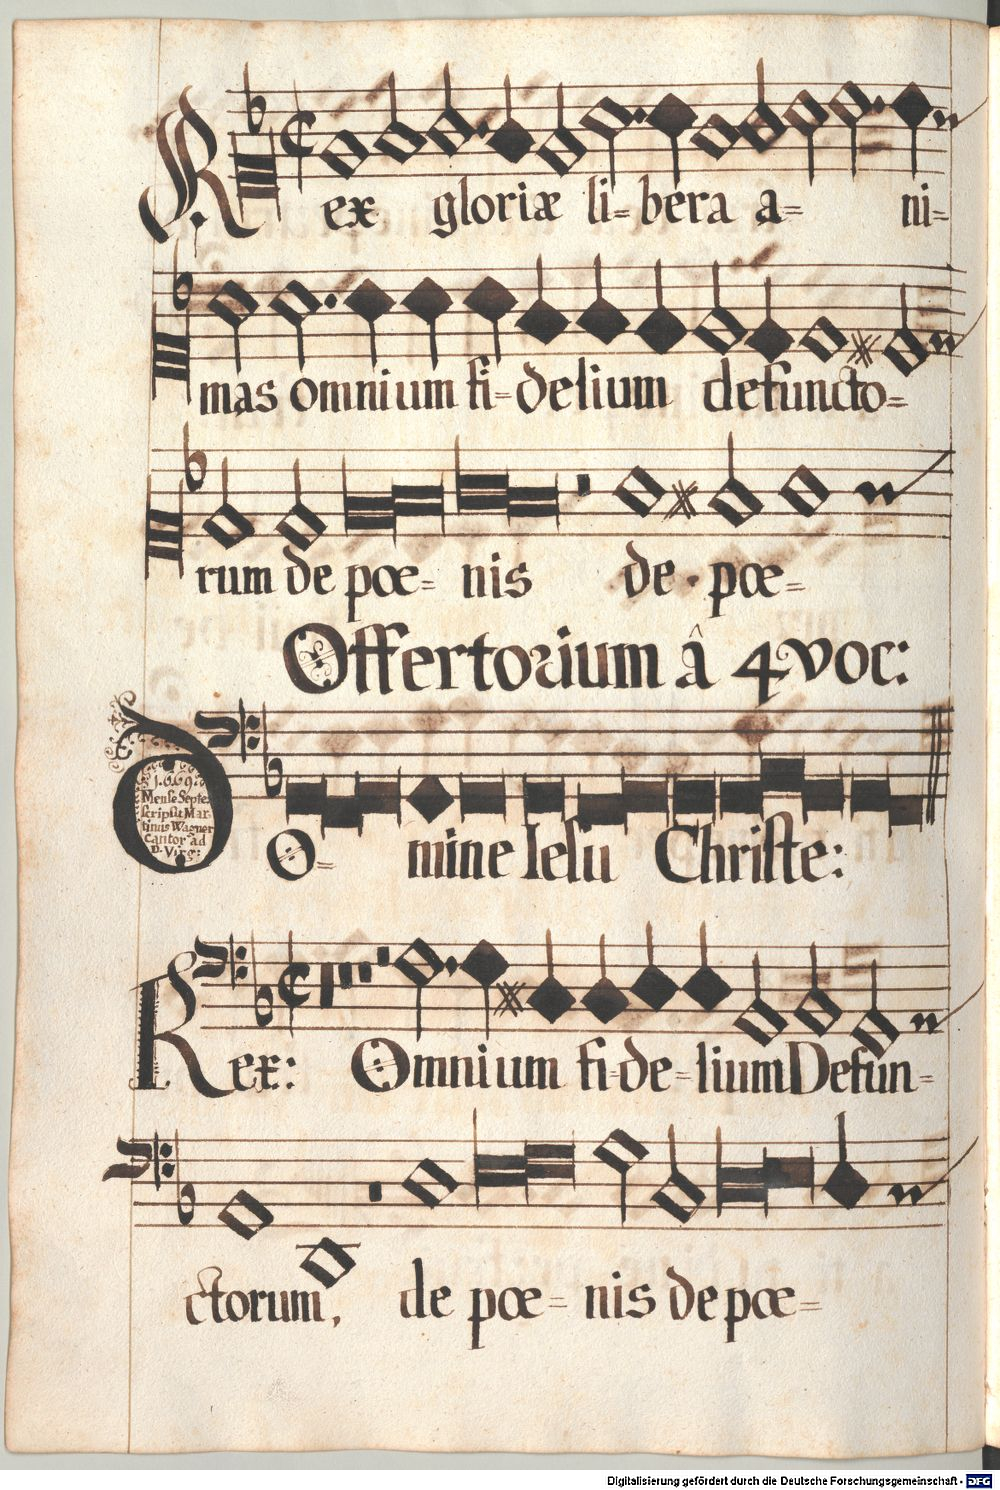 Rex gloriæ li= bera a= ni=
mas omnium fi= delium defuncto=
rum de pœ= nis de pœ=
Offertorium â 4 voc:
1.6.6.9.
Mense Septe:
scripsit Mar-
tinus Wagner
Cantor ad
D. Virg:
DO= mine Iesu Christe:
Rex: Omnium fi=de= lium Defun=
ctorum, de pœ= nis de pœ=
Digitalisierung gefördert durch die Deutsche Forschungsgemeinschaft - DFG